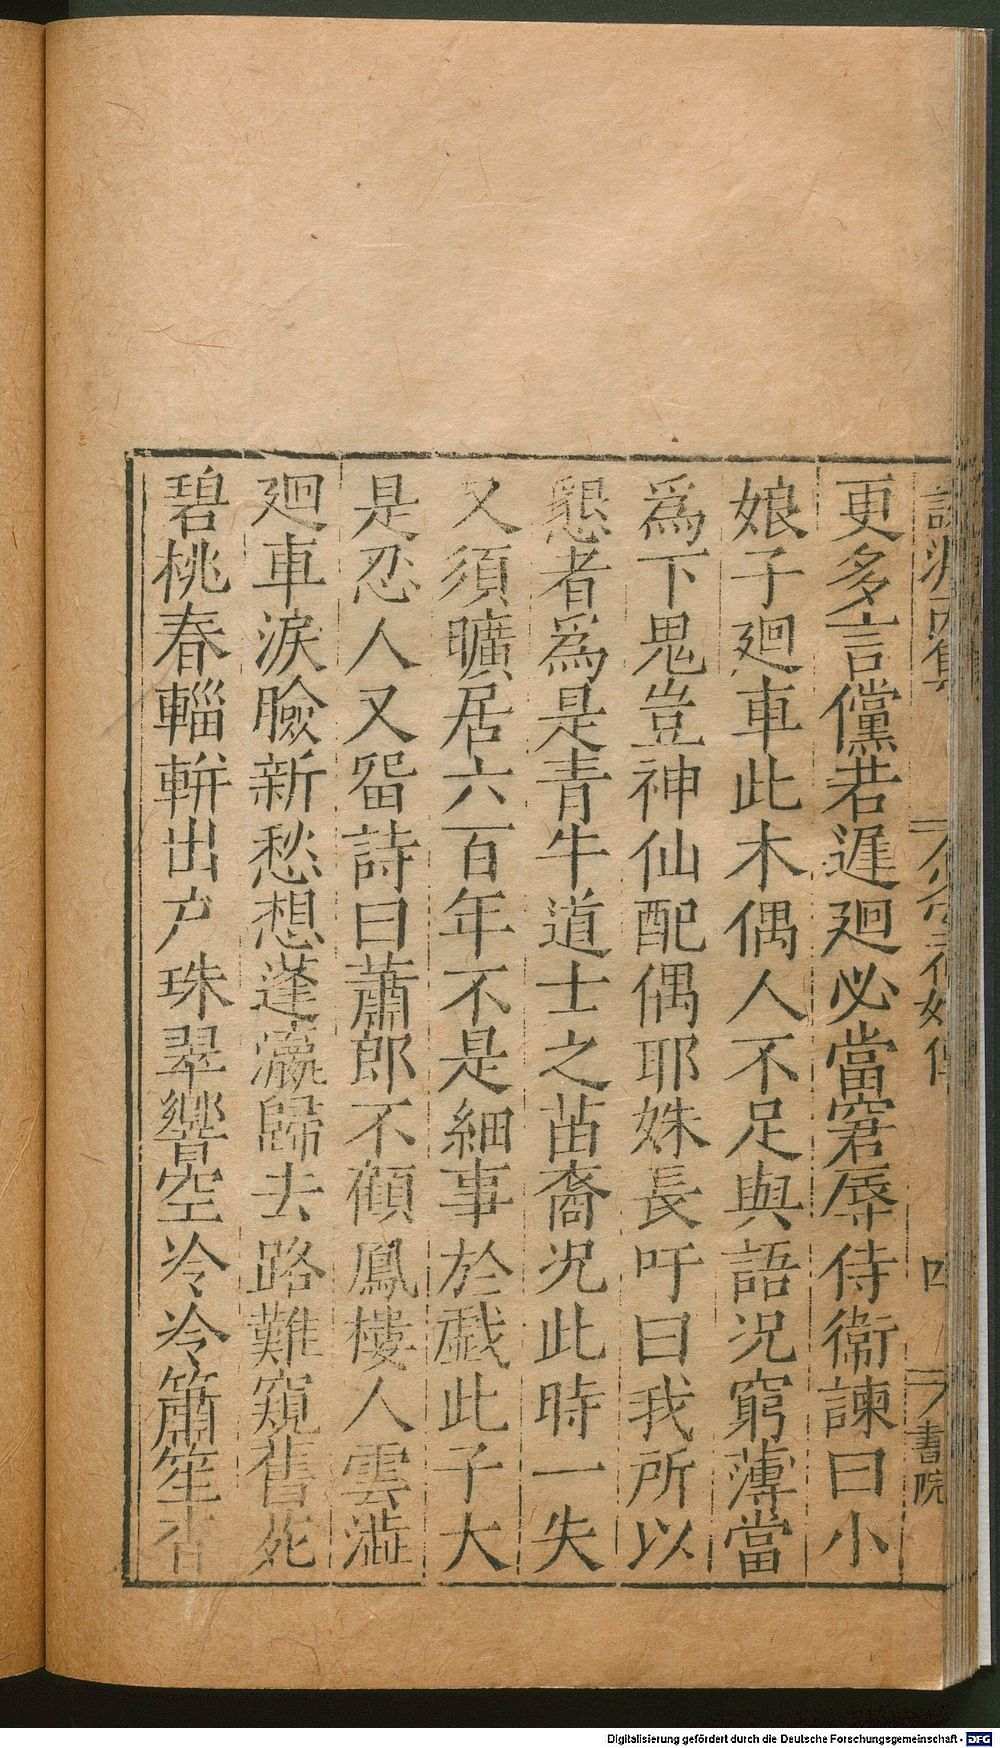 更多言儻若遅廻必當窘辱侍衞諫曰小
娘子廻車此木偶人不足與語况窮薄當
爲下鬼豈神仙配偶耶姝長吁曰我所以
懇者爲是青牛道士之苗裔况此時一失
又須曠居六百年不是細事於戲此子大
是忍人又畱詩曰蕭郎不顧鳳樓人雲澁
廻車淚臉新愁想蓬瀛歸去路難窺舊苑
碧桃春輜輧出户珠翠響空泠泠簫笙杳
四
書院
Digitalisierung gefördert durch die Deutsche Forschungsgemeinschaft - DFG